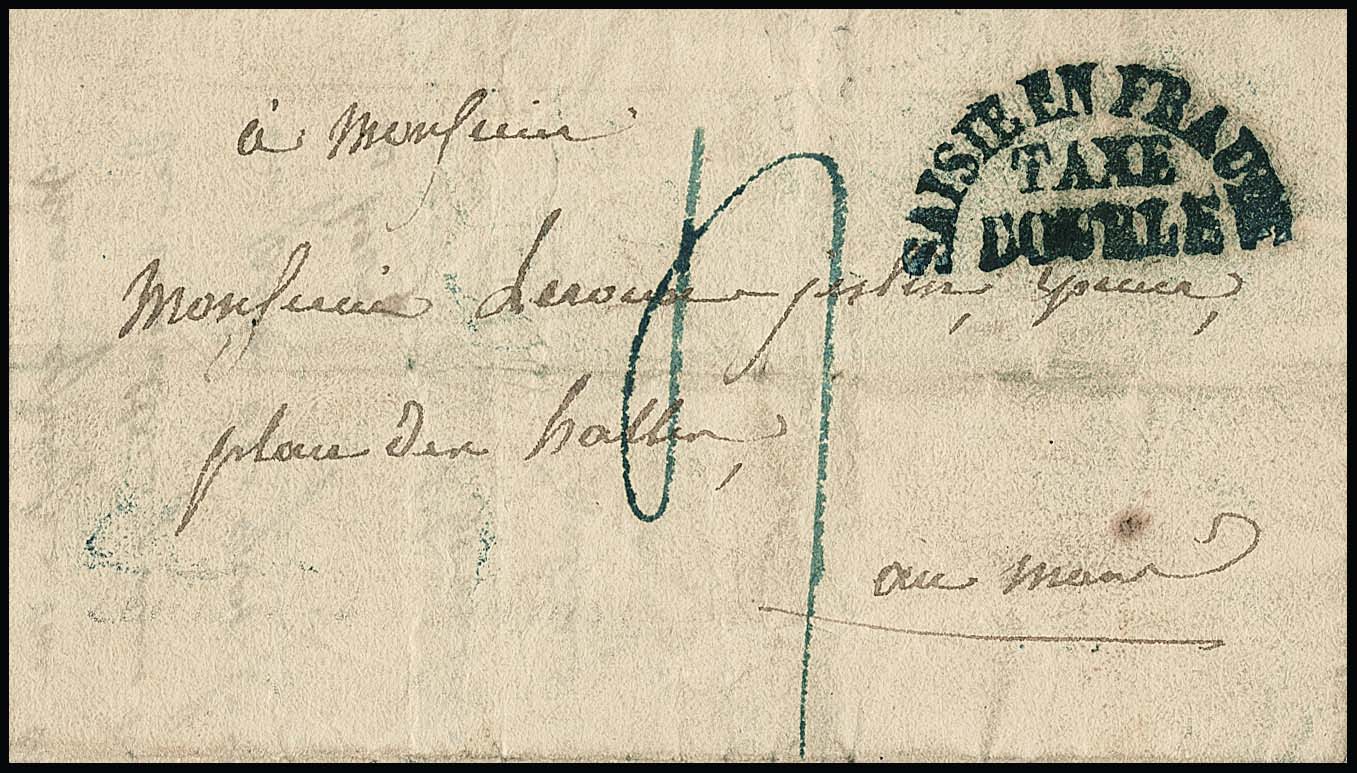 SAISIE EN FRAUDE
TAXE
DOUBLE
à Monsieur
Monsieur justin,
place des halles,
au mans